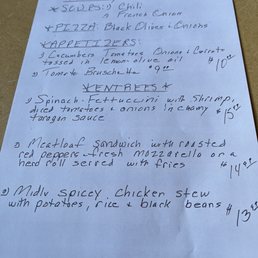 * SOUPS: 1) Chili
2) French Onion
* PIZZA: Black Olives + Onions
* APPETIZERS:
1) Cucumbers Tomatoes Onions + Carrots
tossed in lemon-olive oil $10.00
2) Tomato Bruschetta $9.00
* ENTREES *
1) Spinach Fettuccini with Shrimp,
diced tomatoes + onions in creamy
tarragon sauce $15.00
2) Meatloaf Sandwich with roasted
red peppers + fresh mozzarella on a
hard roll served with fries $14.00
3) Mildly spicey Chicken stew
with potatoes, rice + black beans $13.00